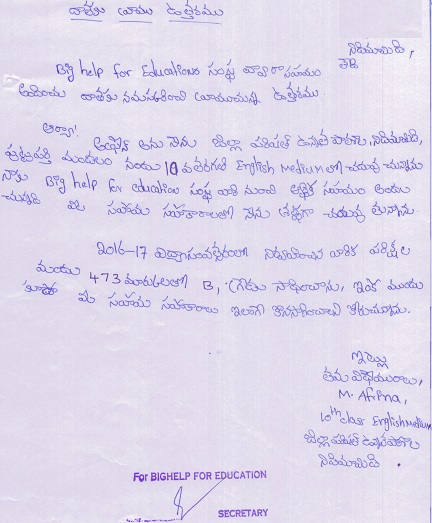 దాతకు వ్రాయు ఉత్తరము
నిడిమామిడి,
తేది
Big help for Education సంస్థ ద్వారా సహాయం
అందించు దాతకు నమస్కరించి వ్రాయునది ఉత్తరము
ఆర్యా! అఫ్రీన అను నేను జిల్లా పరిషత్ ఉన్నత పాఠశాల, నిడిమామిడి,
పుట్టపర్తి మండలం నందు 10 వతరగతి English Mediumలో చదువు చున్నాను
నాకు Big help for education సంస్థ వారి నుంచి ఆర్థిక సహాయం అందు
చున్నది మీ సహాయ సహకారాలతో నేను చదువు తున్నాను
2016-17 విద్యాసంవత్సరంలో నిర్వహించిన వార్షిక పరీక్షల
యందు 473 మార్కులతో B1 గ్రేడు సాధించాను, ఇక ముందు
కూడా మీ సహాయ సహకారాలు ఇలాగే కొనసాగించాలని కోరుచున్నాను.
ఇట్లు
తమ విధేయురాలు,
M. Afrina,
10th class English Medium
జిల్లా పరిషత్ ఉన్నత పాఠశాల
నిడిమామిడి.
For BIGHELP FOR EDUCATION
SECRETARY